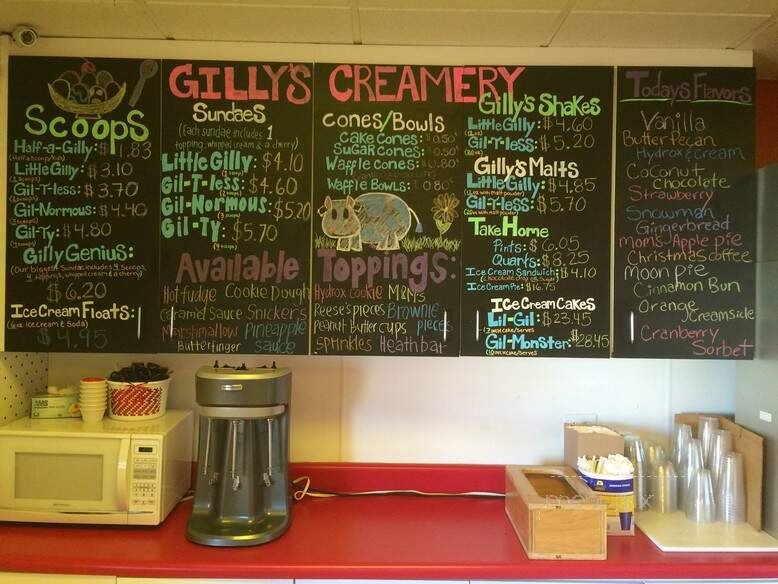 Scoops
Half-a-Gilly: $1.83
Little Gilly: $3.10
Gil-T-less: $3.70
Gil-Normous: $4.40
Gil-Ty: $4.80
Gilly Genius:
(Our biggest Sundae includes 5 scoops,
4 toppings, whipped cream & a cherry)
$6.20
Ice Cream Floats:
(Ice cream & Soda)
$4.45
GILLY'S CREAMERY
Sundaes
(Each sundae includes 1
topping, whipped cream & a cherry)
Little Gilly: $4.10
Gil-T-less: $4.60
Gil-Normous: $5.20
Gil-Ty: $5.70
Cones/Bowls
Cake Cones: 0.50
Sugar Cones: 0.50
Waffle Cones: 0.80
Waffle Bowls: 0.80
Available Toppings:
Hot fudge Cookie Dough Hydrox cookie M&Ms
Caramel Sauce Snickers Reese's pieces Brownie pieces
Marshmallow Pineapple sauce Peanut Butter cups
Butterfinger Sprinkles Heath bar
Gilly's Shakes
Little Gilly: $4.60
Gil-T-less: $5.20
Gilly's Malts
Little Gilly: $4.85
Gil-T-less: $5.70
Take Home
Pints: $6.05
Quarts: $8.25
Ice Cream Sandwich: $4.10
Ice Cream Pie: $16.75
Ice Cream Cakes
Lil-Gil: $23.45
Gil-Monster: $28.45
Todays Flavors
Vanilla
Butter Pecan
Hydrox & Cream
Coconut
Chocolate
Strawberry
Snowman
Gingerbread
Moms Apple pie
Christmas coffee
Moon Pie
Cinnamon Bun
Orange
Creamside
Cranberry
Sorbet